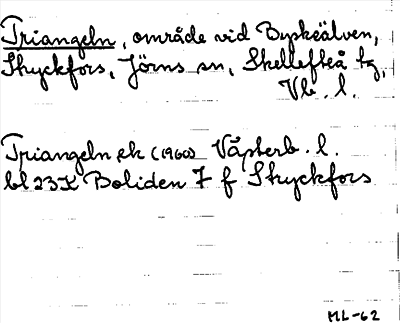 Triangeln, område vid Byskeälven,
Stryckfors, Jörns sn, Skellefteå tg,
Vb. l.
Triangeln, ek (1960) Västerb. l.
bl 23K Boliden 7 f Stryckfors
ML-62